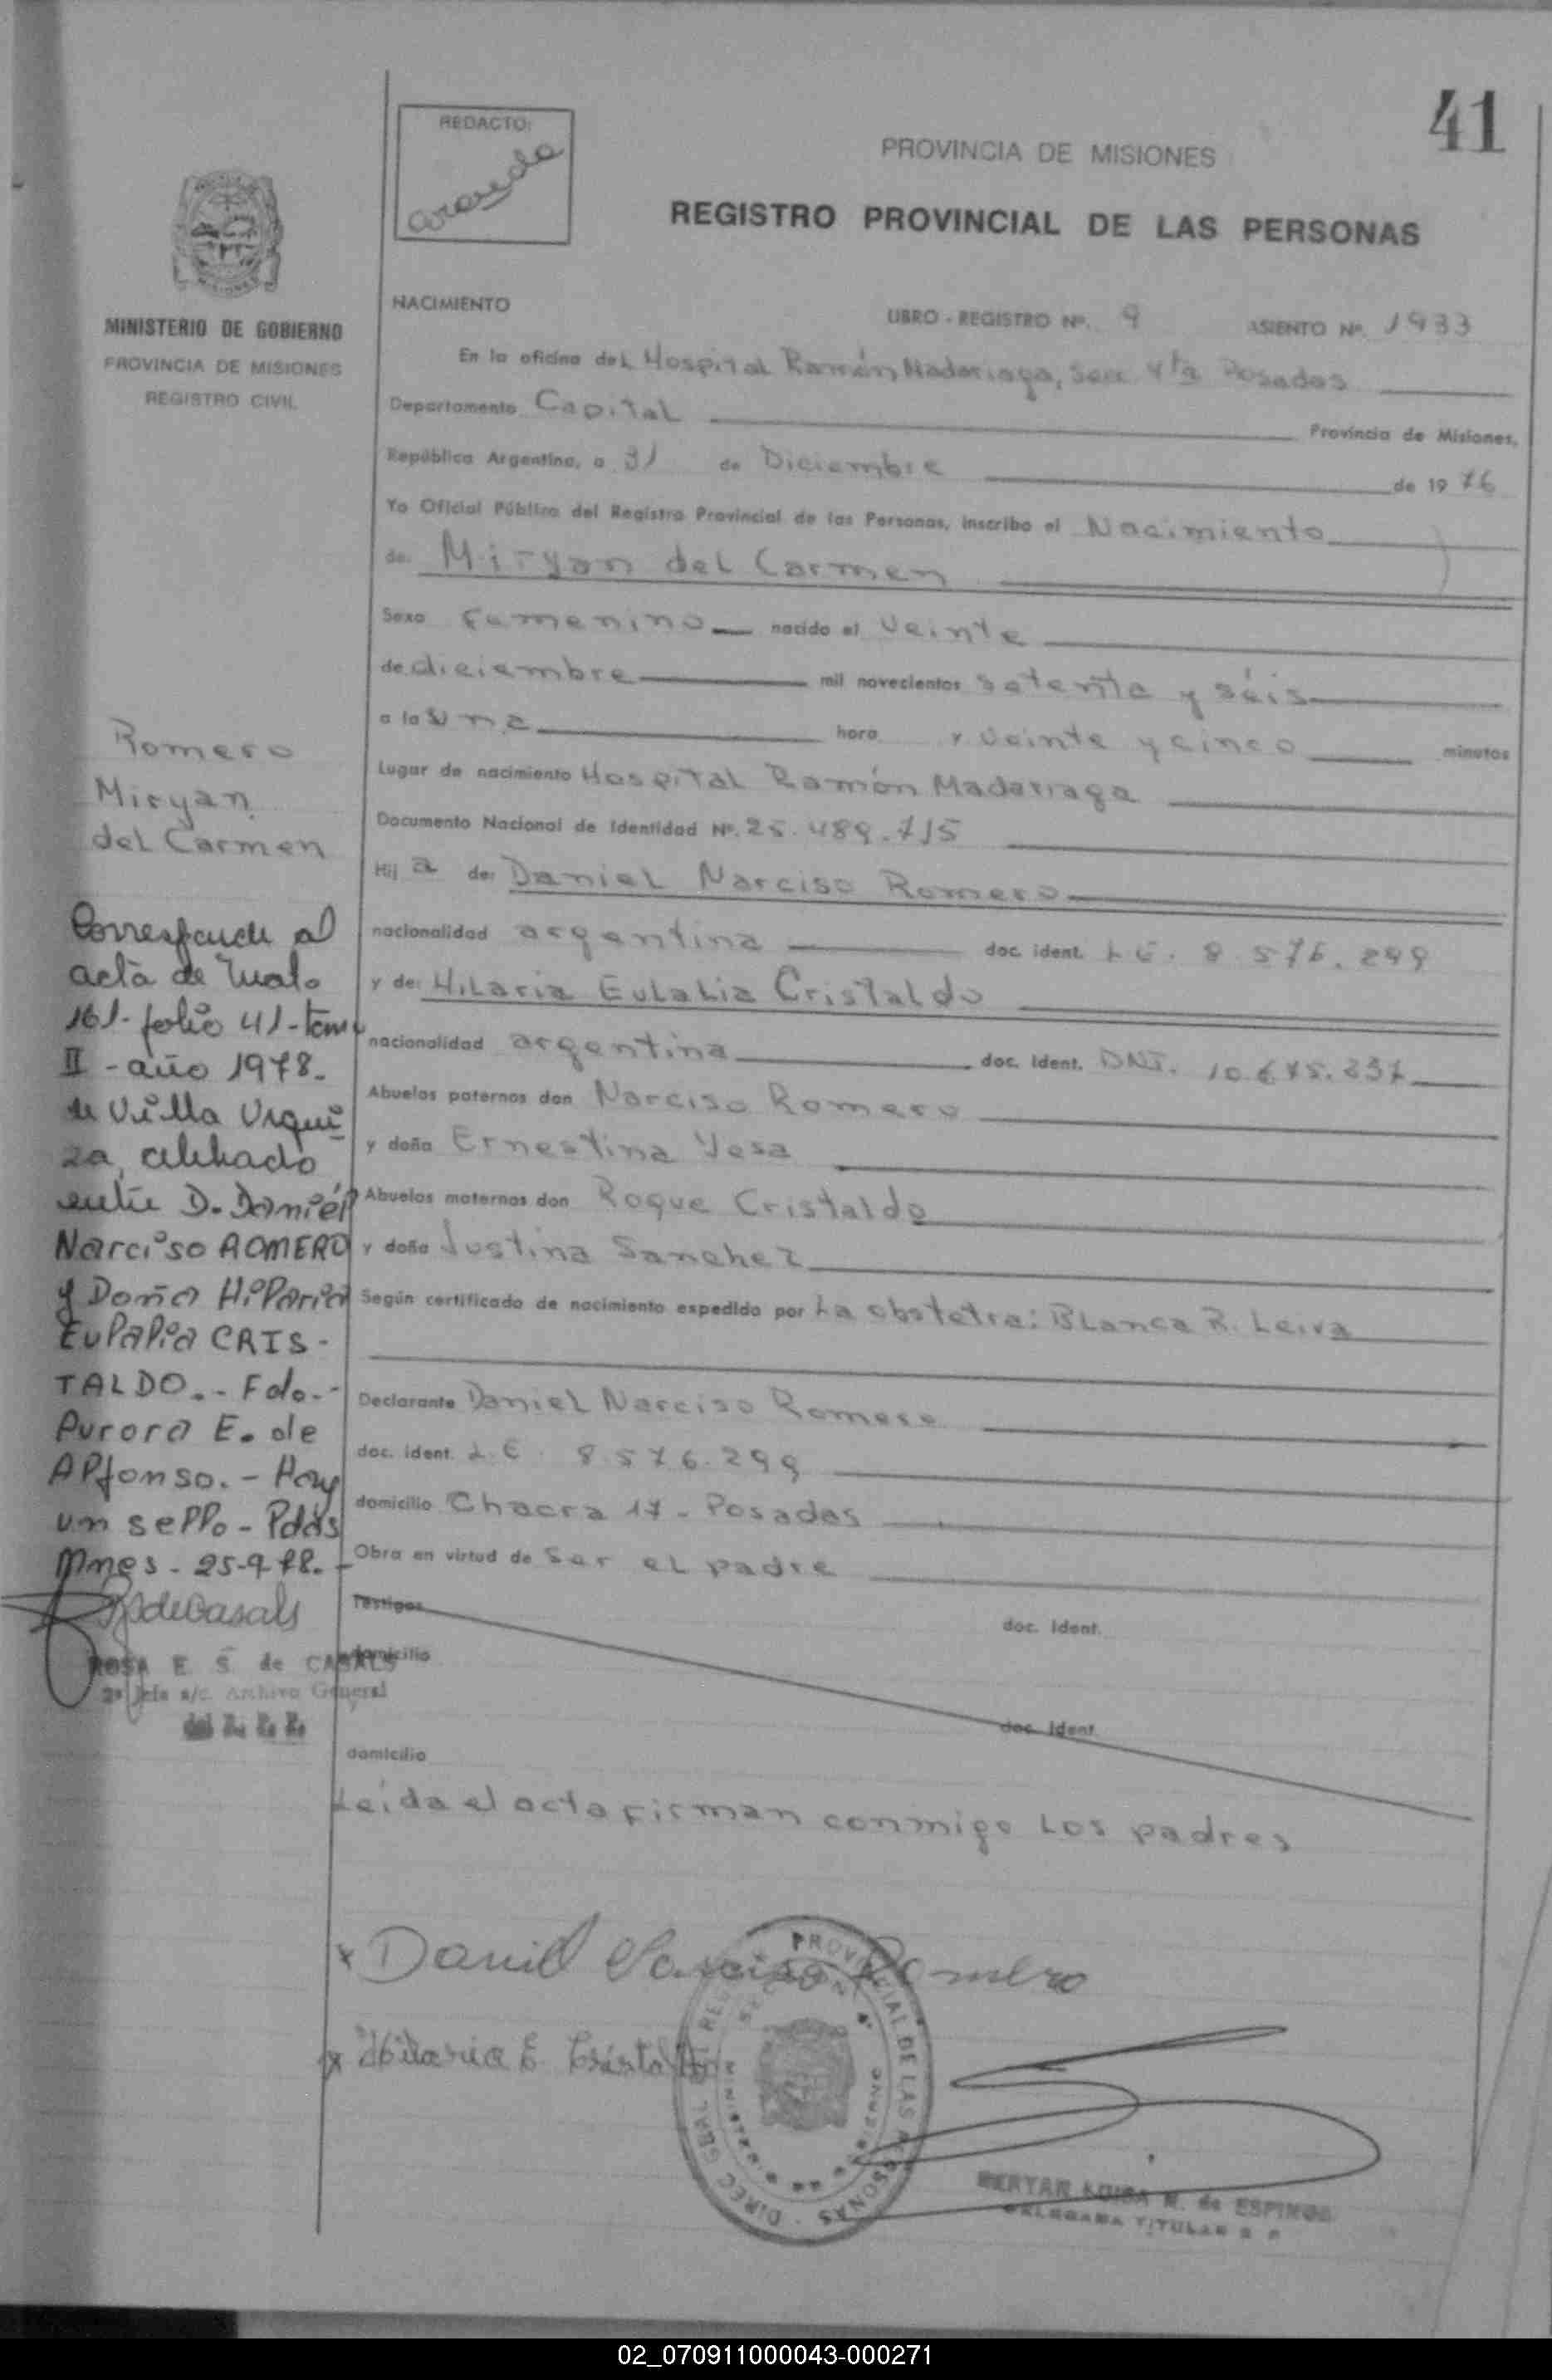 41
REDACTO:
PROVINCIA DE MISIONES
REGISTRO PROVINCIAL DE LAS PERSONAS
MINISTERIO DE GOBIERNO
PROVINCIA DE MISIONES
REGISTRO CIVIL
NACIMIENTO LIBRO - REGISTRO Nº. 9 ASIENTO Nº. 1933
En la oficina del Hospital Ramón Madariaga, Secc 4ta Posadas
Departamento Capital Provincia de Misiones,
República Argentina, a 31 de Diciembre de 1976
Yo Oficial Público del Registro Provincial de las Personas, inscribo el Nacimiento
de: Miryan del Carmen
Sexo Femenino nacido el veinte
de diciembre mil novecientos setenta y séis
a las una hora y veinte y cinco minutos
Lugar de nacimiento Hospital Ramón Madariaga
Documento Nacional de Identidad Nº. 25.489.715
Hija de: Daniel Narciso Romero
nacionalidad argentina doc. ident. L E. 8.576.299
y de: Hilaria Eulalia Cristaldo
nacionalidad argentina doc. ident. DNI. 10.675.237
Abuelos paternos don Narciso Romero
y doña Ernestina Yesa
Abuelos maternos don Roque Cristaldo
y doña Justina Sanchez
Según certificado de nacimiento expedido por La obstetra: Blanca R. Leiva
Declarante Daniel Narciso Romero
doc. ident. L.E. 8.576.299
domicilio Chacra 17 - Posadas
Obra en virtud de ser el padre
Testigos doc. ident.
domicilio
doc. ident.
domicilio
Leída el acta firman conmigo los padres
Romero
Miryan
del Carmen
Corresponde al
acta de Mat.
161- folio 41- tomo
II - año 1978.
de Villa Urqui
za, celebrado
entre D. Daniel
Narciso ROMERO
y Doña Hilaria
Eulalia CRIS-
TALDO.- Fdo.-
Aurora E. de
Alfonso.- Hay
un sello - Pdas
Mnes - 25-9-78.-
ROSA E. S. de CASALS
2ª Jefa a/c. Archivo General
del R. P. P.
x Daniel Narciso Romero
x Hilaria E Cristaldo
DIREC. GRAL. DEL REG. PROVINCIAL DE LAS PERSONAS
MINISTERIO DE GOBIERNO
MERYAN LUISA R. de ESPINOSA
DELEGADA TITULAR R P
02_070911000043-000271